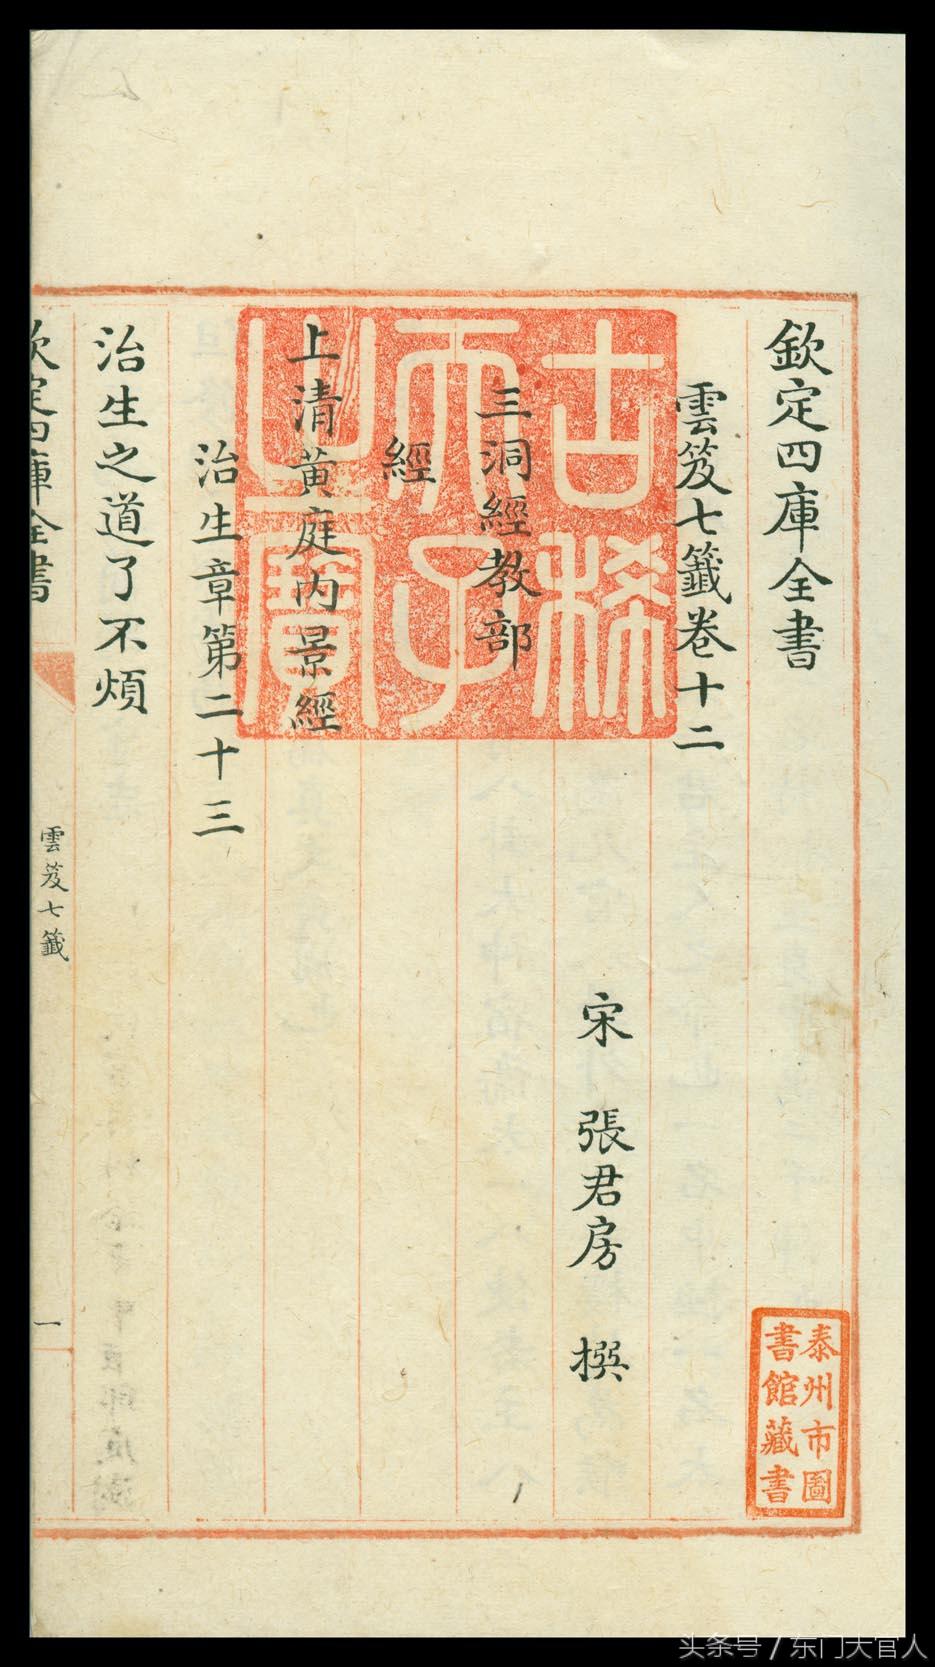 欽定四庫全書
雲笈七籤卷十二
宋 張君房 撰
三洞經教部
經
上清黃庭內景經
治生章第二十三
治生之道了不煩
欽定四庫全書
雲笈七籤
一
古稀
天子
之寶
泰州市圖
書館藏書
头条号 / 东门大官人